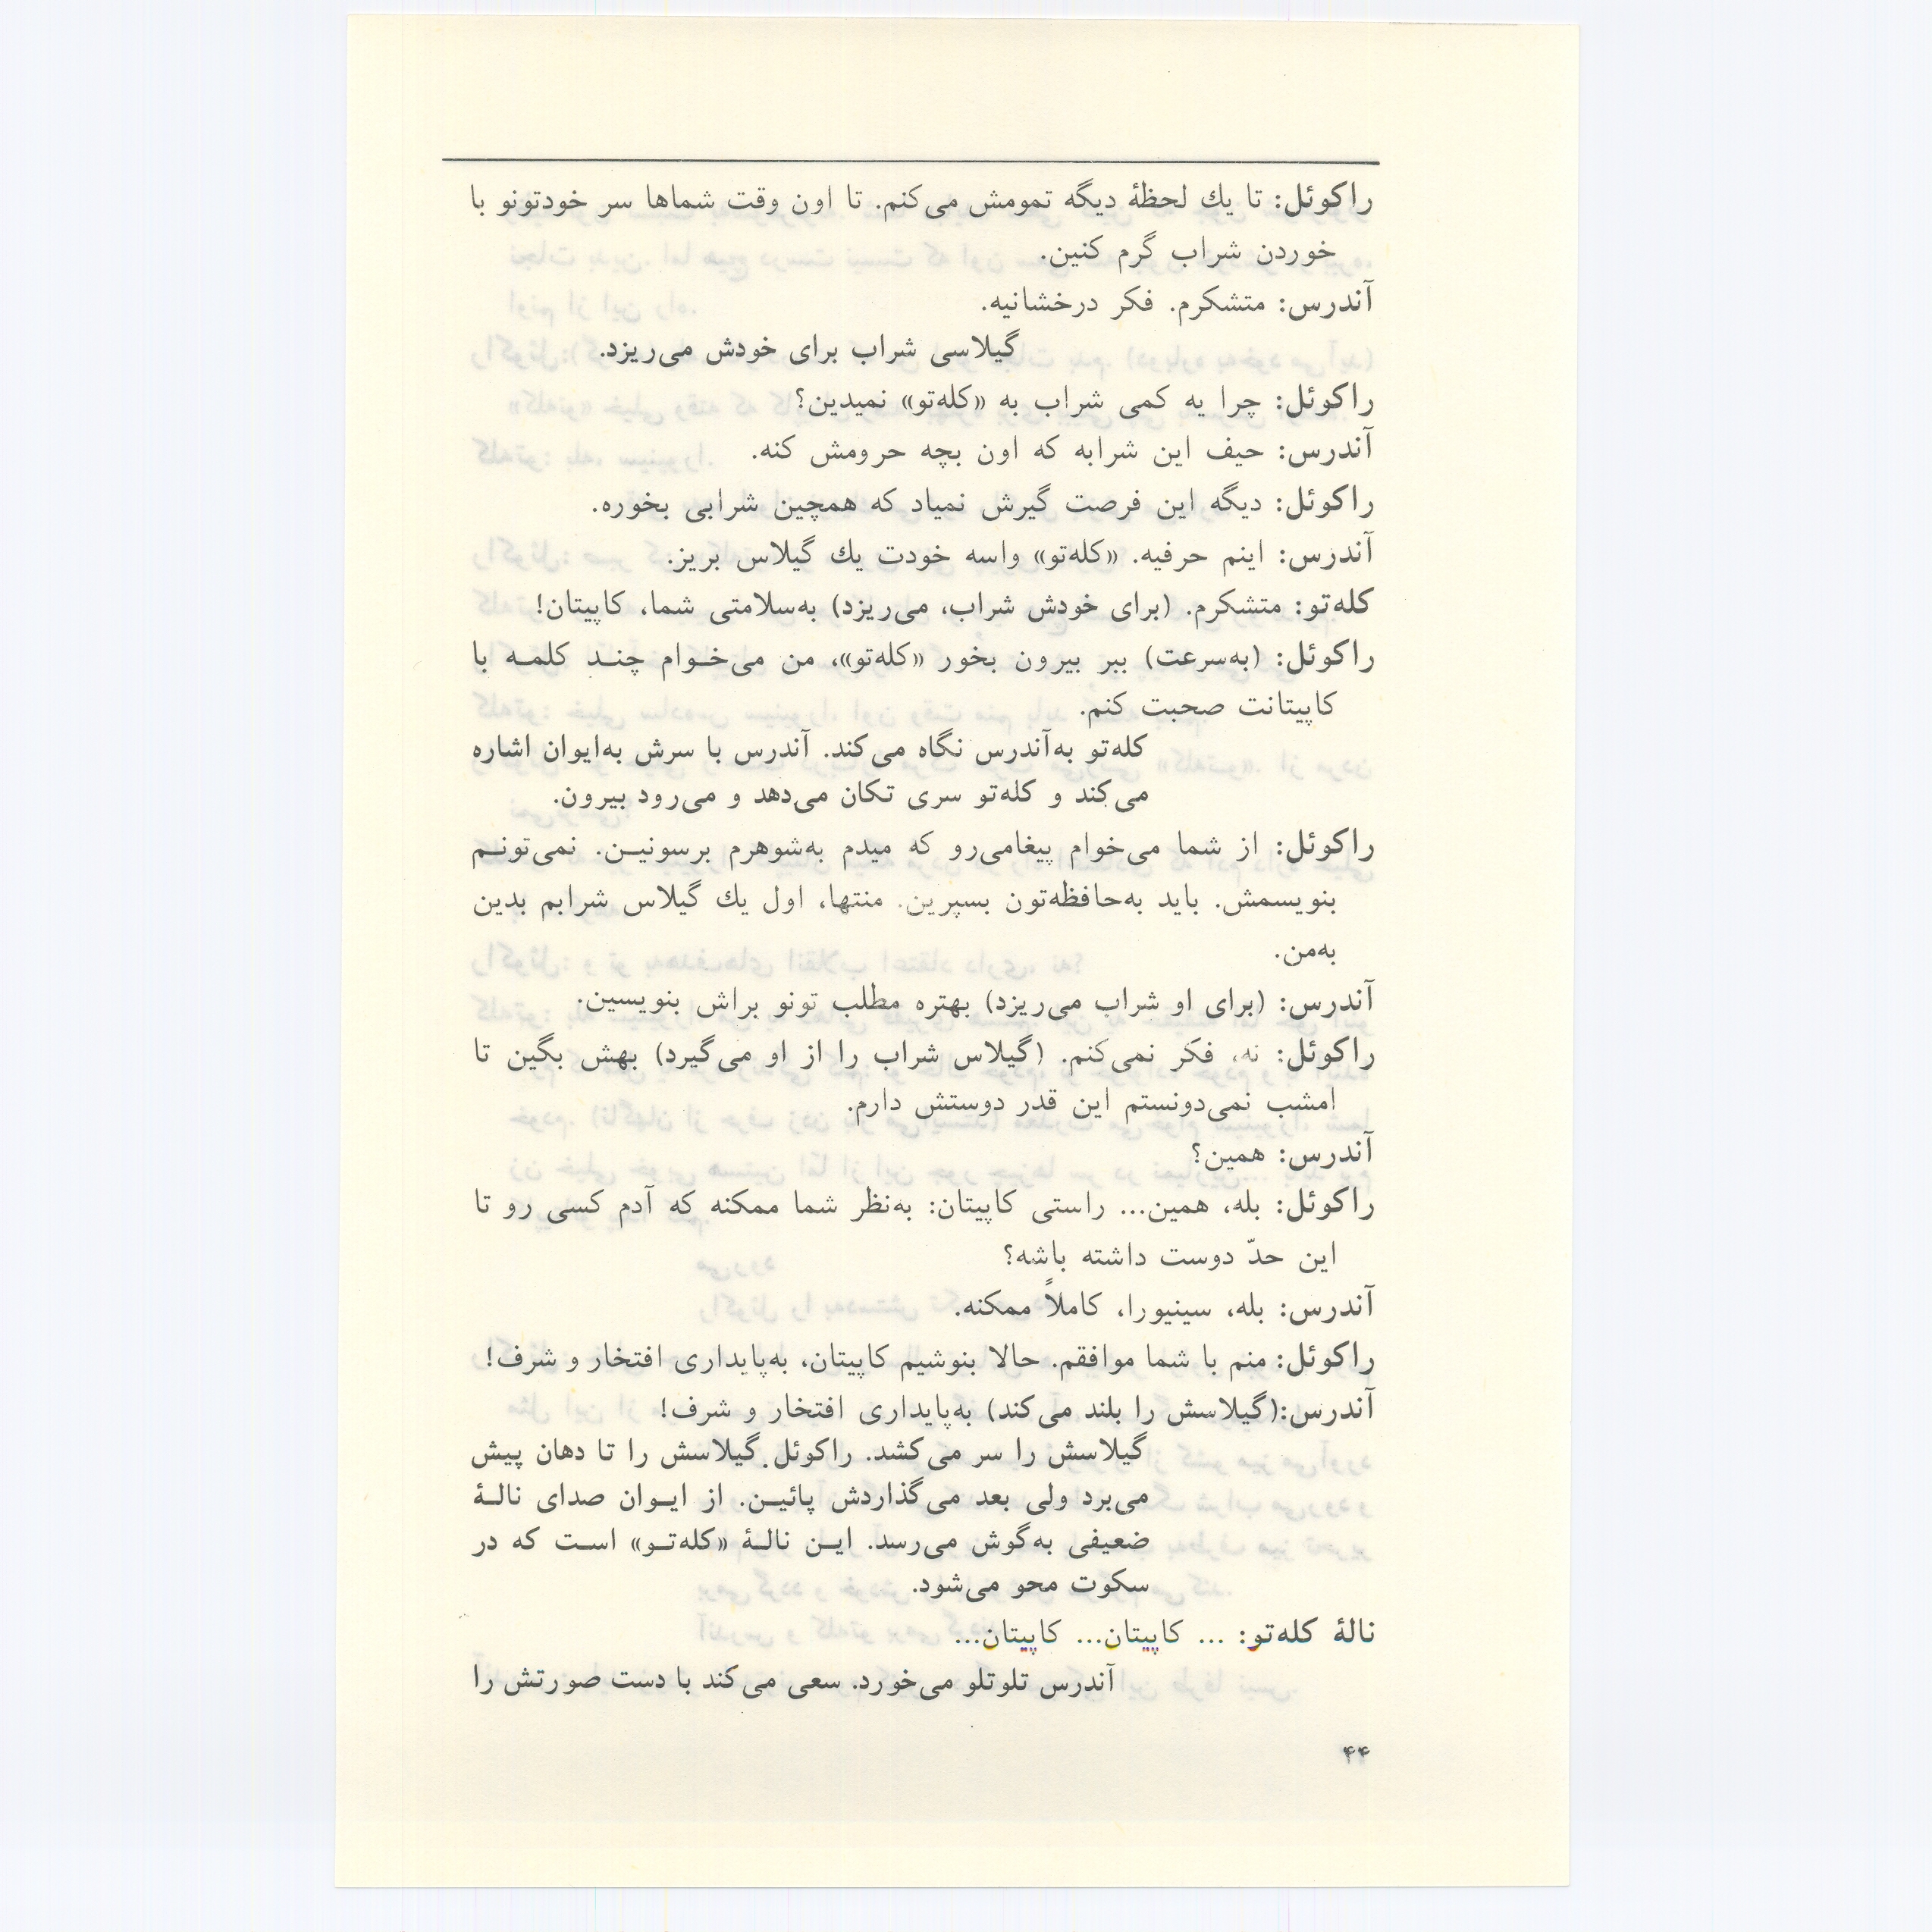 راکوئل: تا یك لحظهٔ دیگه تمومش می‌کنم. تا اون وقت شماها سر خودتونو با
خوردن شراب گرم کنین.
آندرس: متشکرم. فکر درخشانیه.
گیلاسی شراب برای خودش می‌ریزد.
راکوئل: چرا یه کمی شراب به «کله‌تو» نمیدین؟
آندرس: حیف این شرابه که اون بچه حرومش کنه.
راکوئل: دیگه این فرصت گیرش نمیاد که همچین شرابی بخوره.
آندرس: اینم حرفیه. «کله‌تو» واسه خودت یك گیلاس بریز.
کله‌تو: متشکرم. (برای خودش شراب، می‌ریزد) به‌سلامتی شما، کاپیتان!
راکوئل: (به‌سرعت) ببر بیرون بخور «کله‌تو»، من می‌خـوام چنـد کلمـه با
کاپیتانت صحبت کنم.
کله‌تو به‌آندرس نگاه می‌کند. آندرس با سرش به‌ایوان اشاره
می‌کند و کله‌تو سری تکان می‌دهد و می‌رود بیرون.
راکوئل: از شما می‌خوام پیغامی‌رو که میدم به‌شوهرم برسونیـن. نمی‌تونـم
بنویسمش. باید به‌حافظه‌تون بسپرین. منتها، اول یك گیلاس شرابم بدین
به‌من.
آندرس: (برای او شراب می‌ریزد) بهتره مطلب تونو براش بنویسین.
راکوئل: نه، فکر نمی‌کنم. (گیلاس شراب را از او می‌گیرد) بهش بگین تا
امشب نمی‌دونستم این قدر دوستش دارم.
آندرس: همین؟
راکوئل: بله، همین... راستی کاپیتان: به‌نظر شما ممکنه که آدم کسی رو تا
این حدّ دوست داشته باشه؟
آندرس: بله، سینیورا، کاملاً ممکنه.
راکوئل: منم با شما موافقم. حالا بنوشیم کاپیتان، به‌پایداری افتخار و شرف!
آندرس:(گیلاسش را بلند می‌کند) به‌پایداری افتخار و شرف!
گیلاسش را سر می‌کشد. راکوئل گیلاسش را تا دهان پیش
می‌برد ولی بعد می‌گذاردش پائیـن. از ایـوان صدای نالـهٔ
ضعیفی به‌گوش می‌رسد. ایـن نالـهٔ «کله‌تـو» اسـت که در
سکوت محو می‌شود.
نالهٔ کله‌تو: ... کاپیتان... کاپیتان...
آندرس تلوتلو می‌خورد. سعی می‌کند با دست صورتش را
۴۴